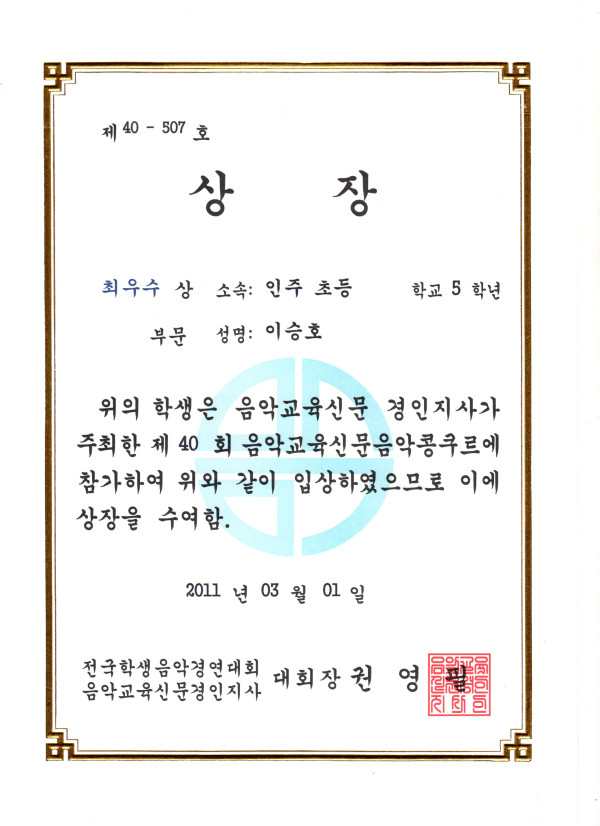 제 40 - 507 호
상 장
최우수 상 소속: 인주 초등 학교 5 학년
부문 성명: 이승호
위의 학생은 음악교육신문 경인지사가
주최한 제 40 회 음악교육신문음악콩쿠르에
참가하여 위와 같이 입상하였으므로 이에
상장을 수여함.
2011 년 03 월 01 일
전국학생음악경연대회
음악교육신문경인지사
대회장 권 영 필